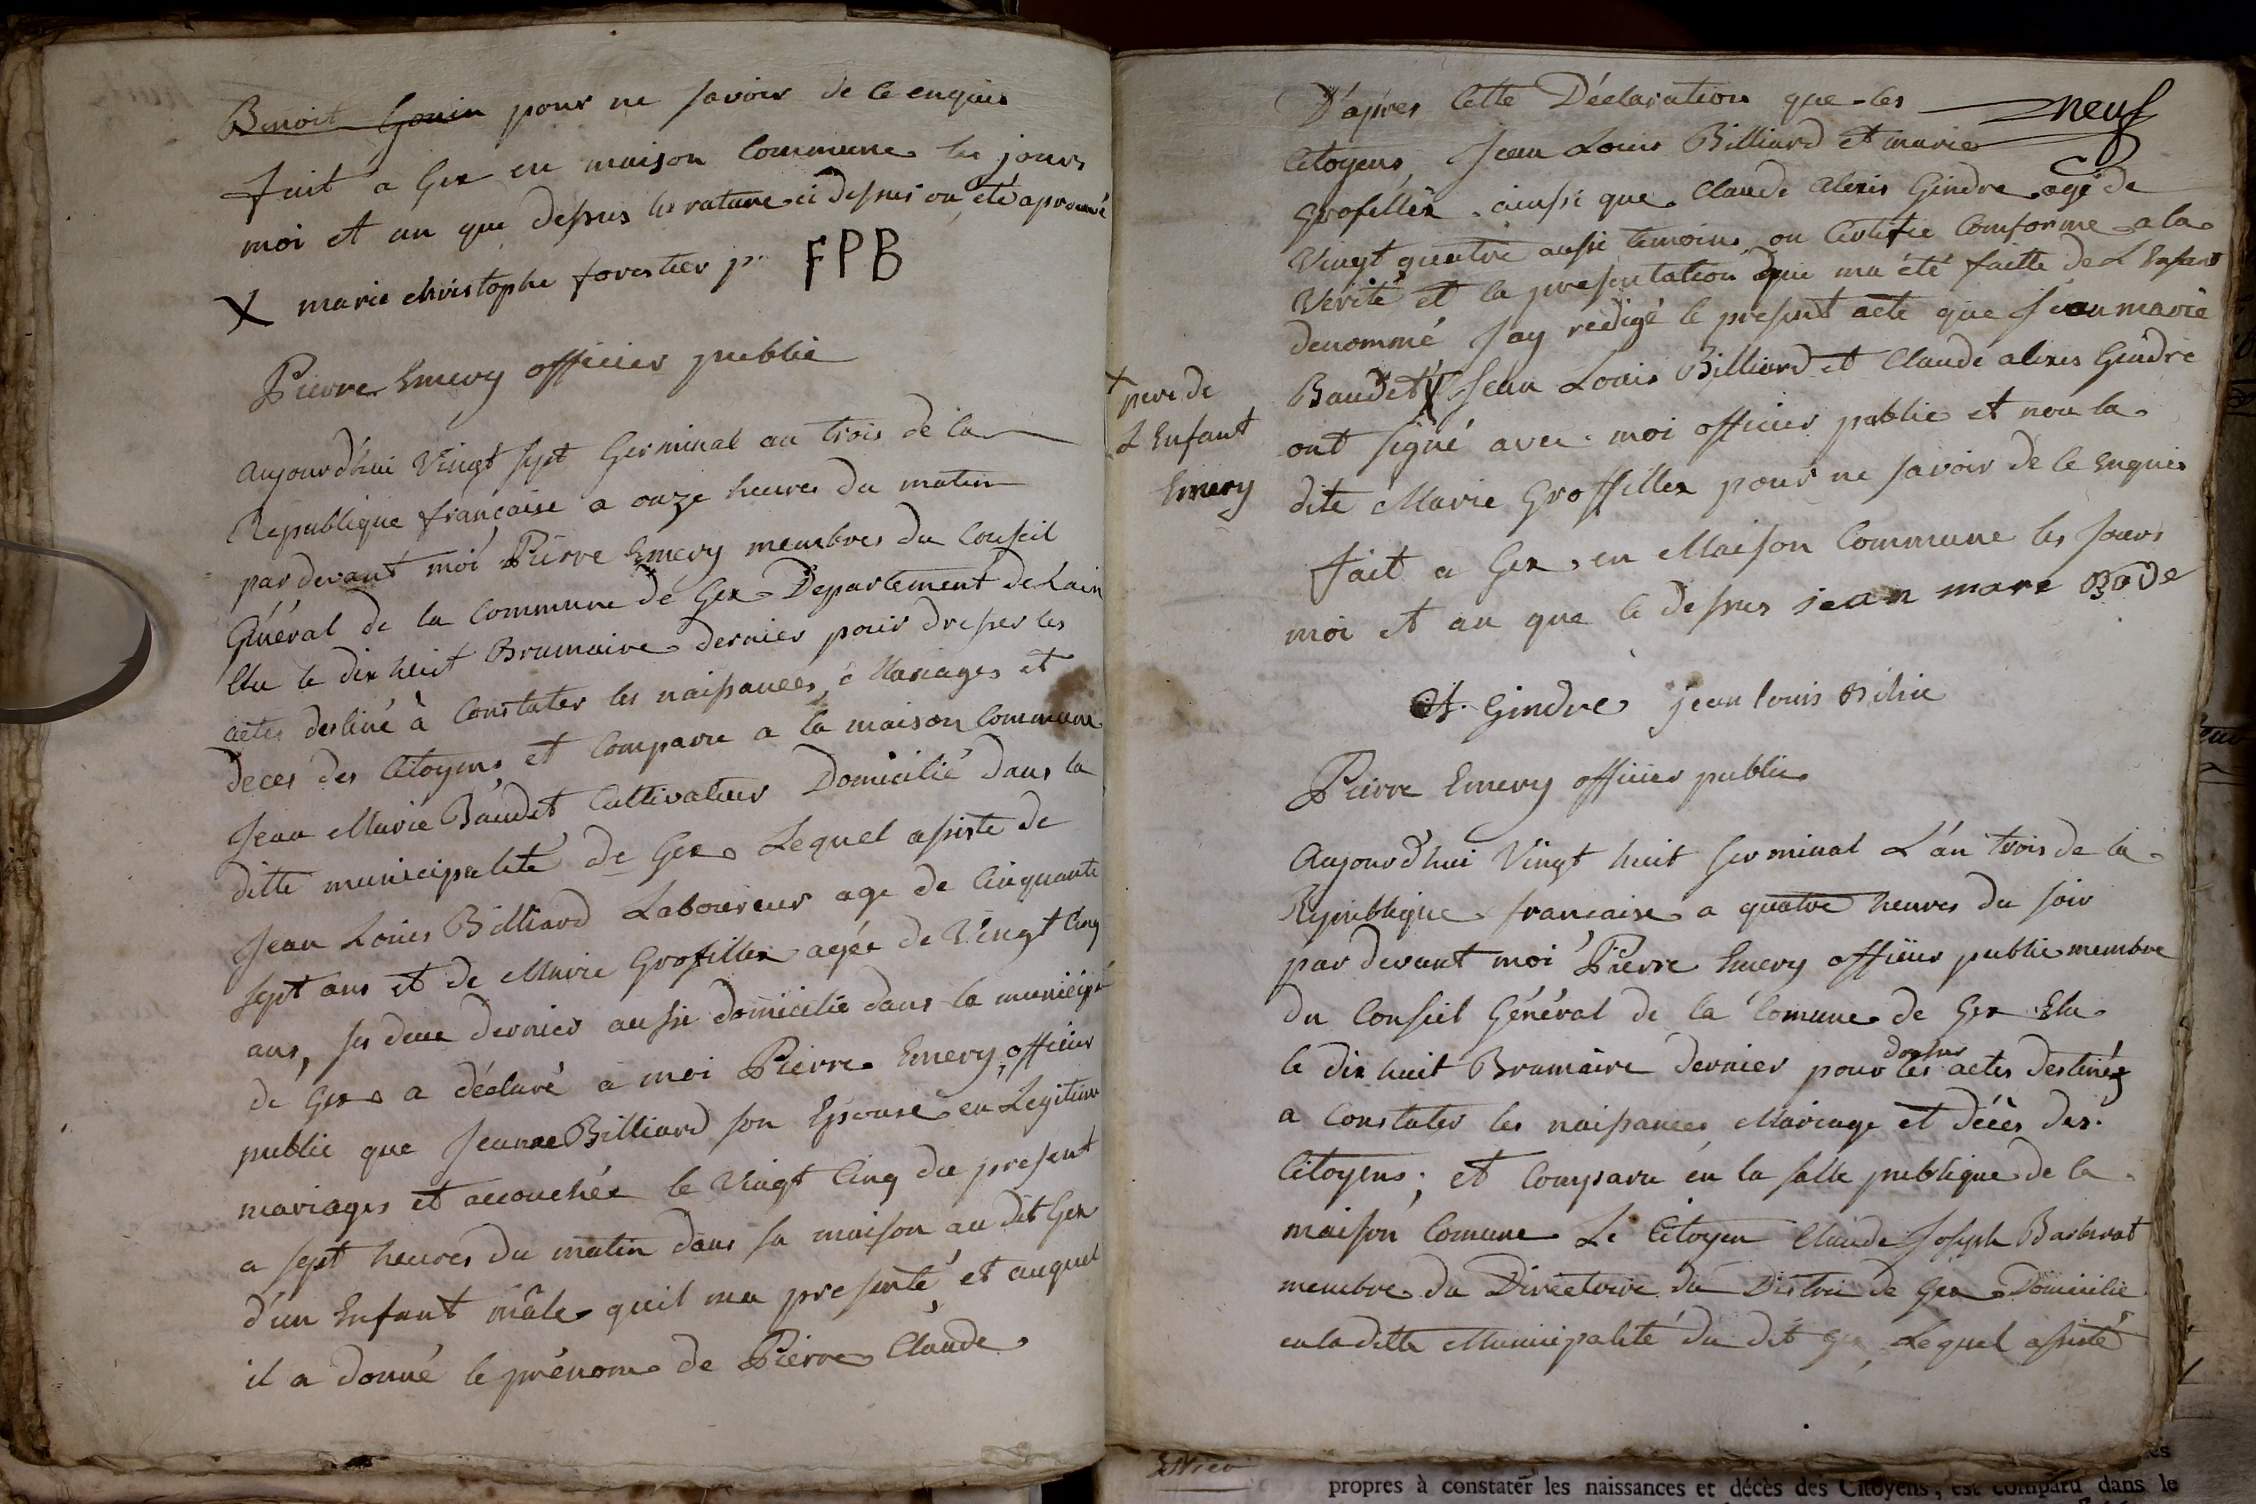 Benoit Gonin pour ne savoir de ce enquis
fait a Gex en maison Commune les jours
moi et an que dessus les rature ci dessus on été aprouvé
X marie christophe forestier p.. FPB
Pierre Emery officier public
Aujourd'hui Vingt sept Germinal an trois de la
Republique française a onze heures du matin
par devant moi Pierre Emery membres du Conseil
Général de la Commune de Gex Departement de Lain
Elu le dix huit Brumaire dernier pour dresser les
actes destiné à Constater les naissances, Mariages et
deces des Citoyens, et Comparu a la maison Commune
Jean Marie Baudet Cultivateur Domicilié dans la
ditte municipalité de Gex Lequel assiste de
Jean Louis Billiard Laboureur age de Cinquante
sept ans et de Marie Grosfillex agée de Vingt Cinq
ans, ses deux dernier aussi domicilié dans la municipé
de Gex a déclaré a moi Pierre Emery, officier
public que Jeanne Billiard son Epouse en Legitime
mariages et accouchée le Vingt Cinq du present
a sept heures du matin dans sa maison au dit Gex
d'un Enfant mâle quil ma presenté, et auquel
il a donné le prénom de Pierre Claude
neuf
D'apres Cette Déclaration que les
Citoyens, Jean Louis Billiard et marie
Grosfillex ainsi que Claude Alexis Gindre agé de
Vingt quatre aussi temoins on Certifie Comforme a la
Verité et la presentation que ma été faitte de L Enfant
denommé Jay rédigé le present acte que Jean marie
Baudet X Jean Louis Billiard et Claude alexis Gindre
X pere de
L Enfant
Emery
ont signé avec moi officier public et non la
dite Marie Groffillex pour ne savoir de ce Enquis
fait a Gex en Maison Commune les Jours
moi et an que le dessus jean mare Bode
A. Gindre jean louis Bilia
Pierre Emery officier public
Aujourd'hui Vingt huit Germinal L'an trois de la
Republique francaise a quatre heures du soir
par devant moi Pierre Emery officier public membre
du Conseil Général de la Comune de Gex Elu
le dix huit Brumaire dernier pour dresser les actes destinés
a Constater les naissances, Mariage et décès des
Citoyens; et Comparu en la salle publique de la
maison Comune Le Citoyen Claude Joseph Barberat
membre du Directoire du District de Gex Domicilie
en la ditte Municipalité du dit Gex, Lequel assisté
propres à constater les naissances et décès des Citoyens, est comparu dans le